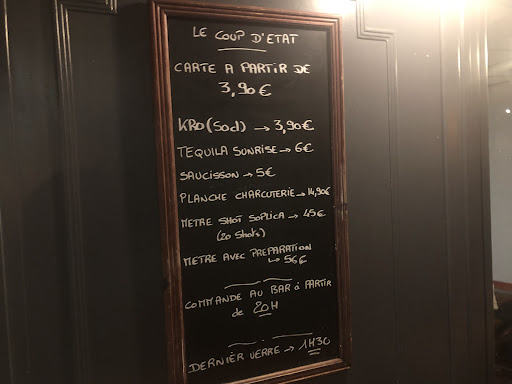 LE COUP D'ETAT
CARTE A PARTIR DE
3,90€
KRO (50cl) → 3,90€
TEQUILA SUNRISE → 6€
SAUCISSON → 5€
PLANCHE CHARCUTERIE → 14,90€
METRE SHOT SOPLICA → 45€
(20 shots)
METRE AVEC PREPARATION
↳ 56€
COMMANDE AU BAR à PARTIR
de 20H
DERNIÈR VERRE → 1H30